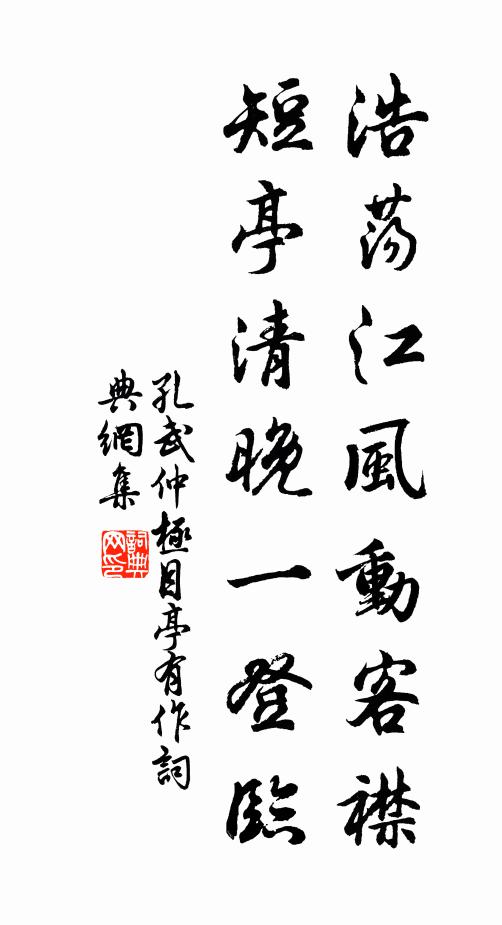 浩蕩江風動客襟
短亭清晚一登臨
孔武仲極目亭有作詞
典網集
詞典网印